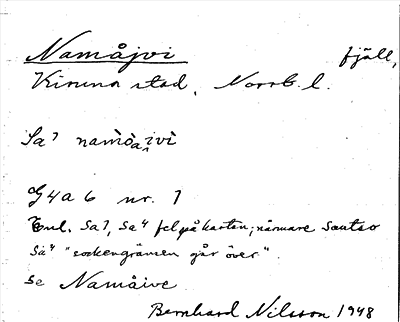 Namåjvi fjäll,
Kiruna stad, Norrb. l.
Sa⁷ namòa͡ivì
G4a6 nr. 1
Enl. Sa7, Sa4 fel på kartan; närmare Sautso
Sa4 "sockengränsen går över".
se Namåive.
Bernhard Nilsson 1948